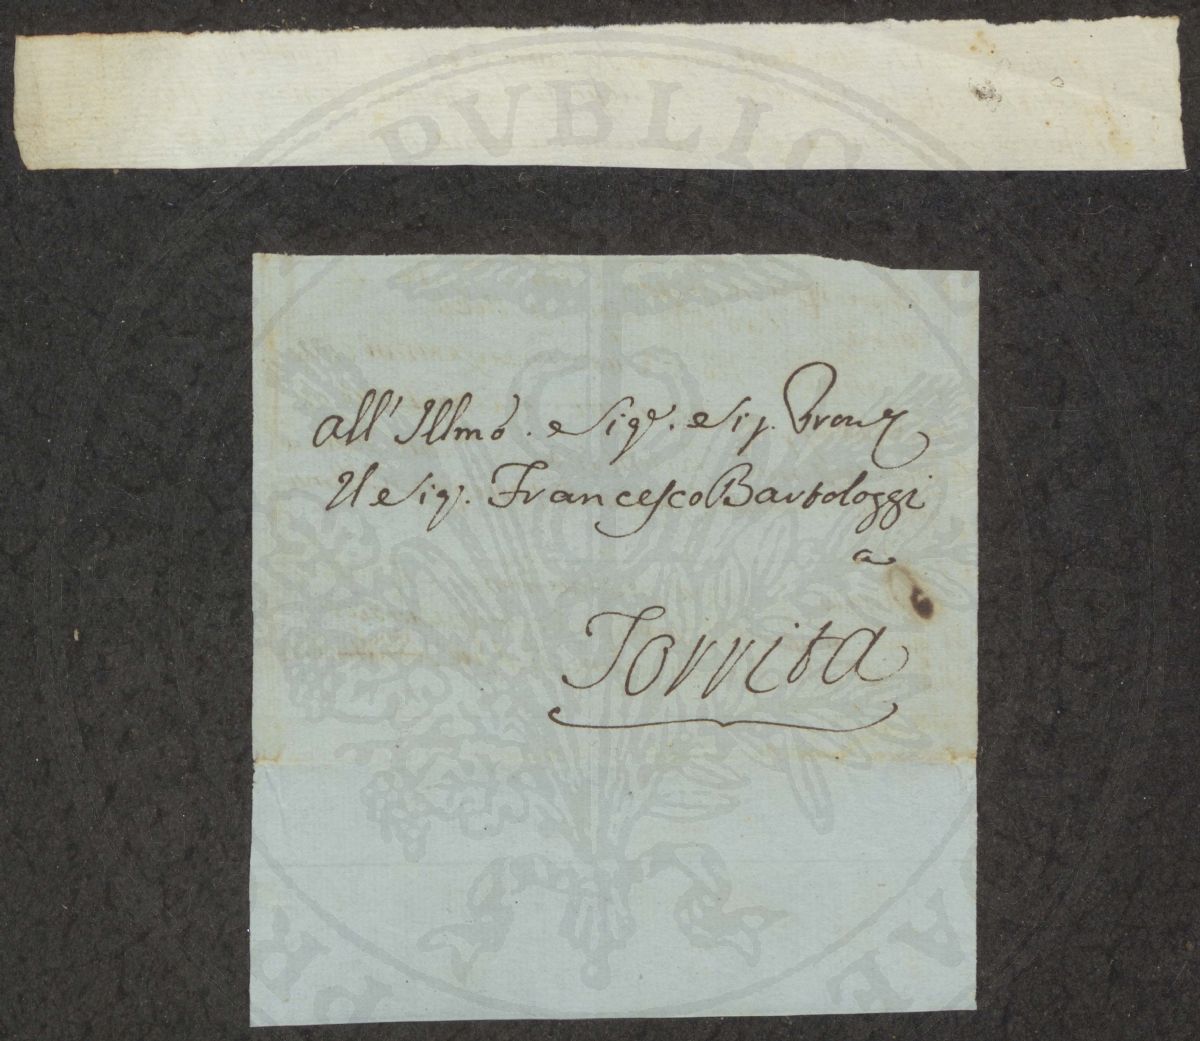 PVBLIC
all' Illmo. Sigre. Sig. Pron
Il Sigr. Francesco Bartologgi
a
Torrita